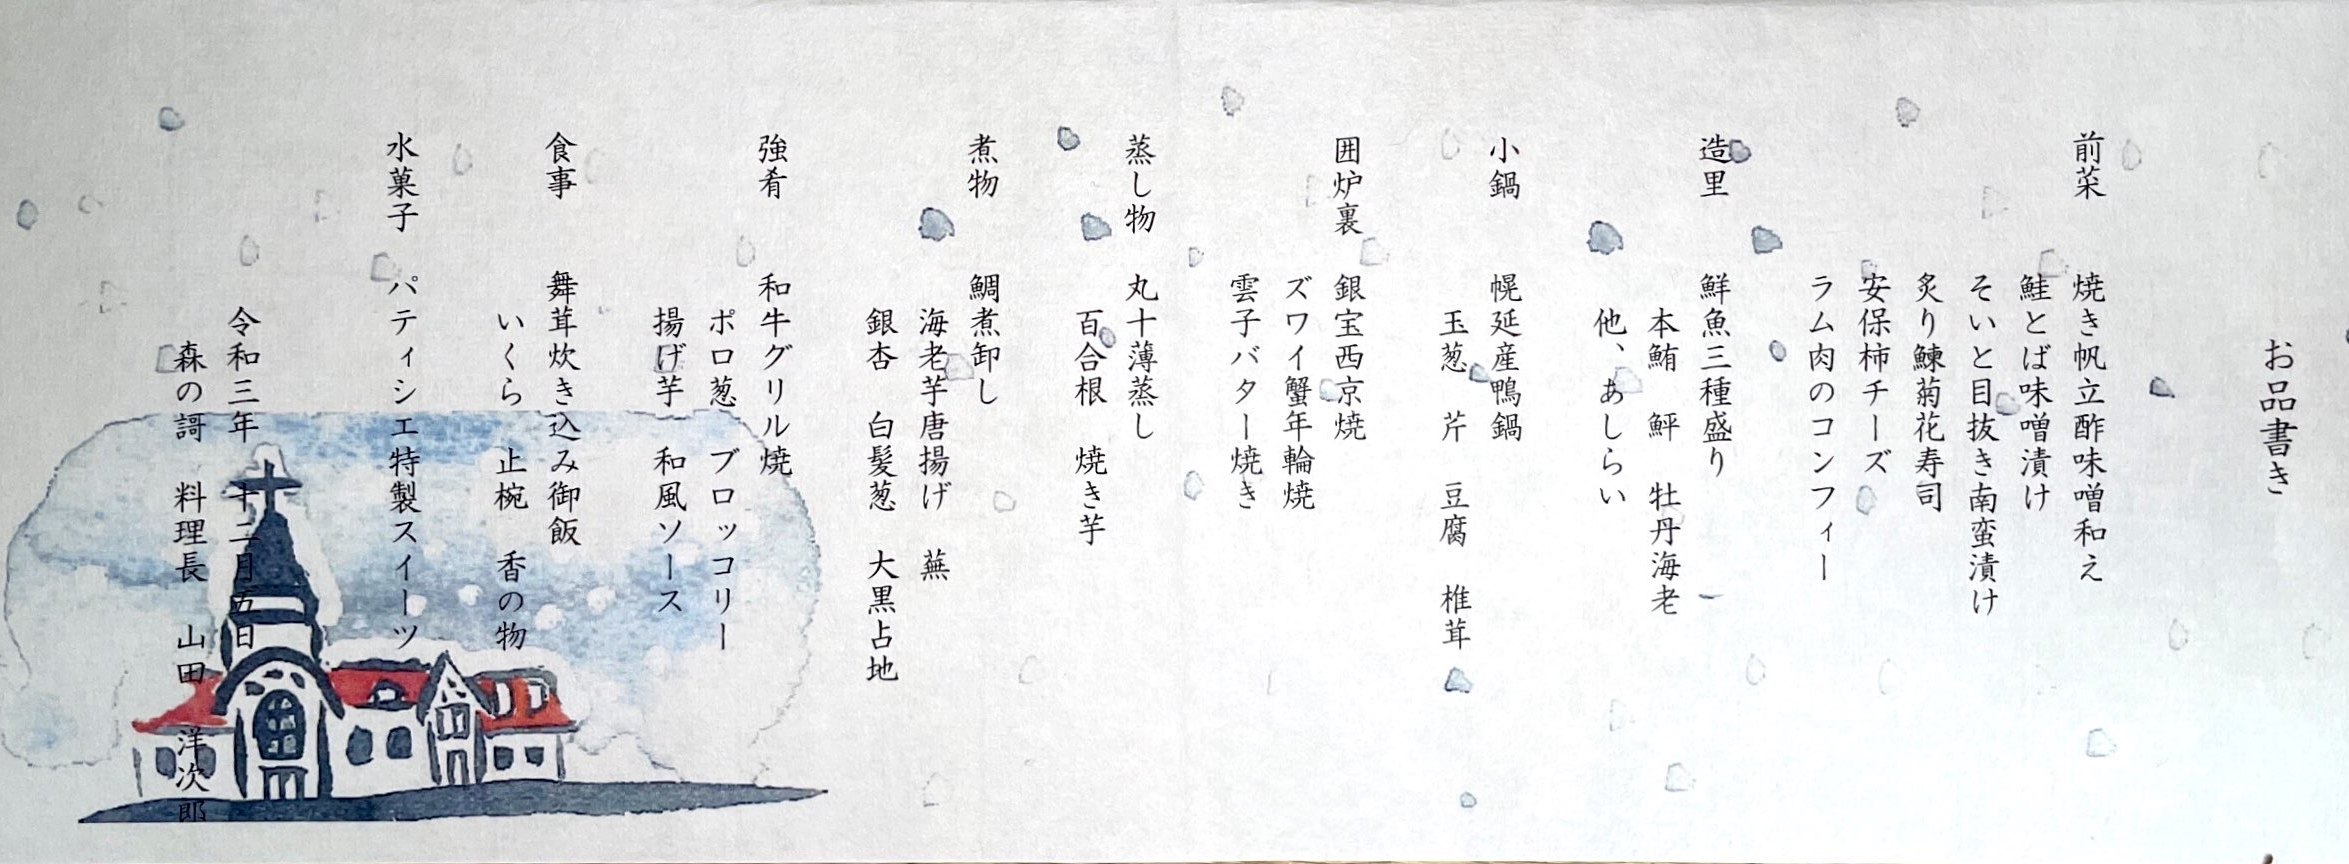 お品書き
前菜　焼き帆立酢味噌和え
鮭とば味噌漬け
そいと目抜き南蛮漬け
炙り鰊菊花寿司
安保柿チーズ
ラム肉のコンフィー
造里　鮮魚三種盛り
本鮪　鮃　牡丹海老
他、あしらい
小鍋　幌延産鴨鍋
玉葱　芹　豆腐　椎茸
囲炉裏　銀宝西京焼
ズワイ蟹年輪焼
雲子バター焼き
蒸し物　丸十薄蒸し
百合根　焼き芋
煮物　鯛煮卸し
海老芋唐揚げ　蕪
銀杏　白髪葱　大黒占地
強肴　和牛グリル焼
ポロ葱　ブロッコリー
揚げ芋　和風ソース
食事　舞茸炊き込み御飯
いくら　止椀　香の物
水菓子　パティシエ特製スイーツ
令和三年　十二月五日
森の謌　料理長　山田　洋次郎